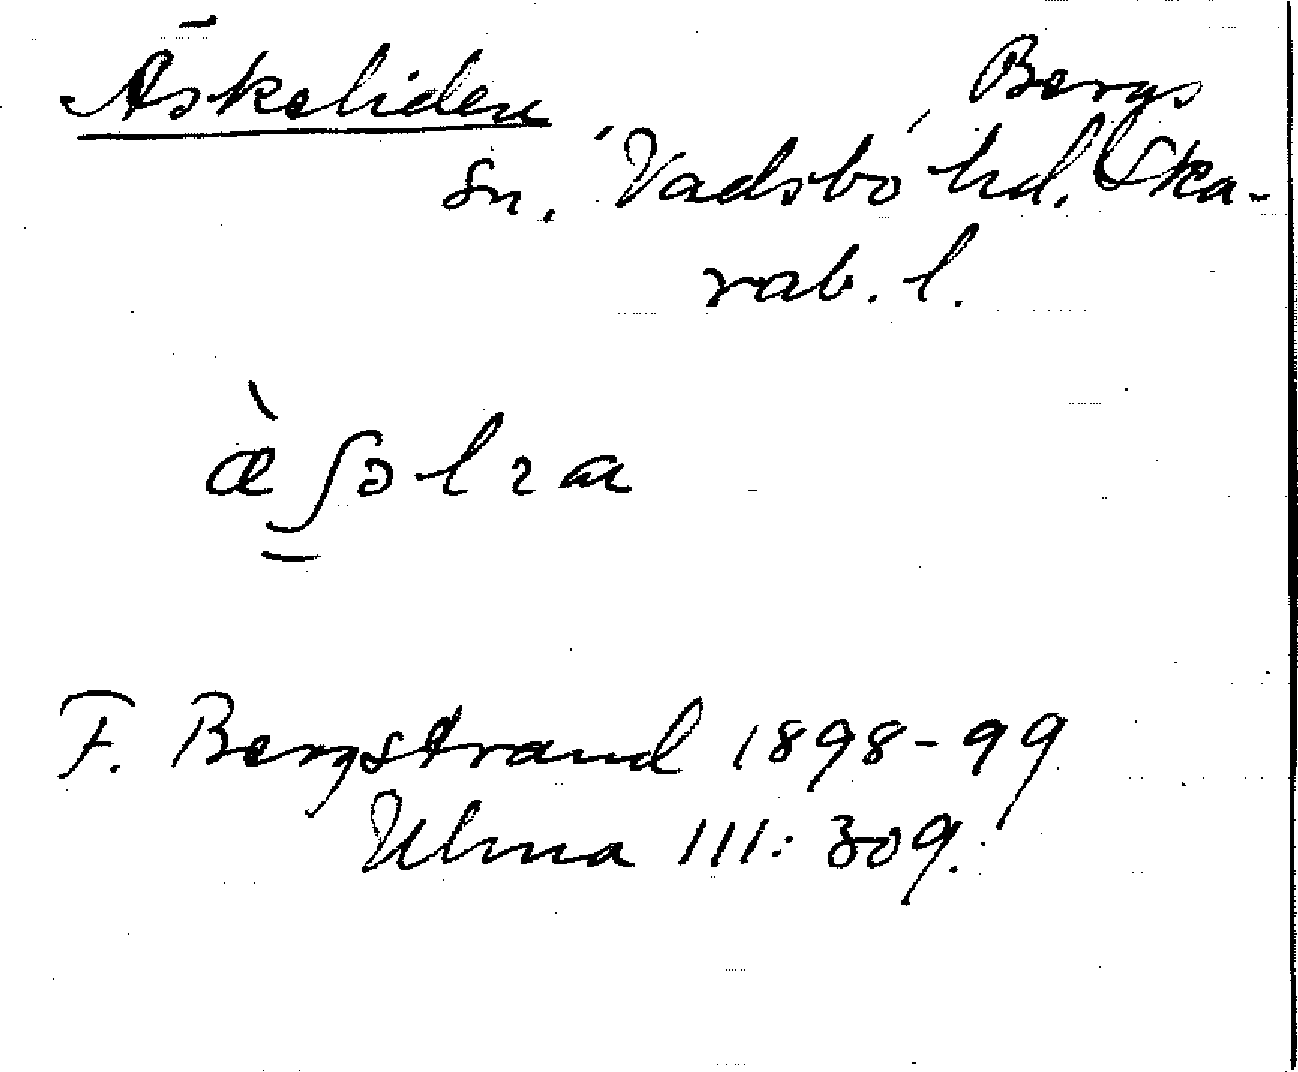 Äskeliden Bergs
sn. Vadsbo hd. Ska-
rab. l.
æ̀ʃəlıa
F. Bergstrand 1898-99
Ulma 111:309.